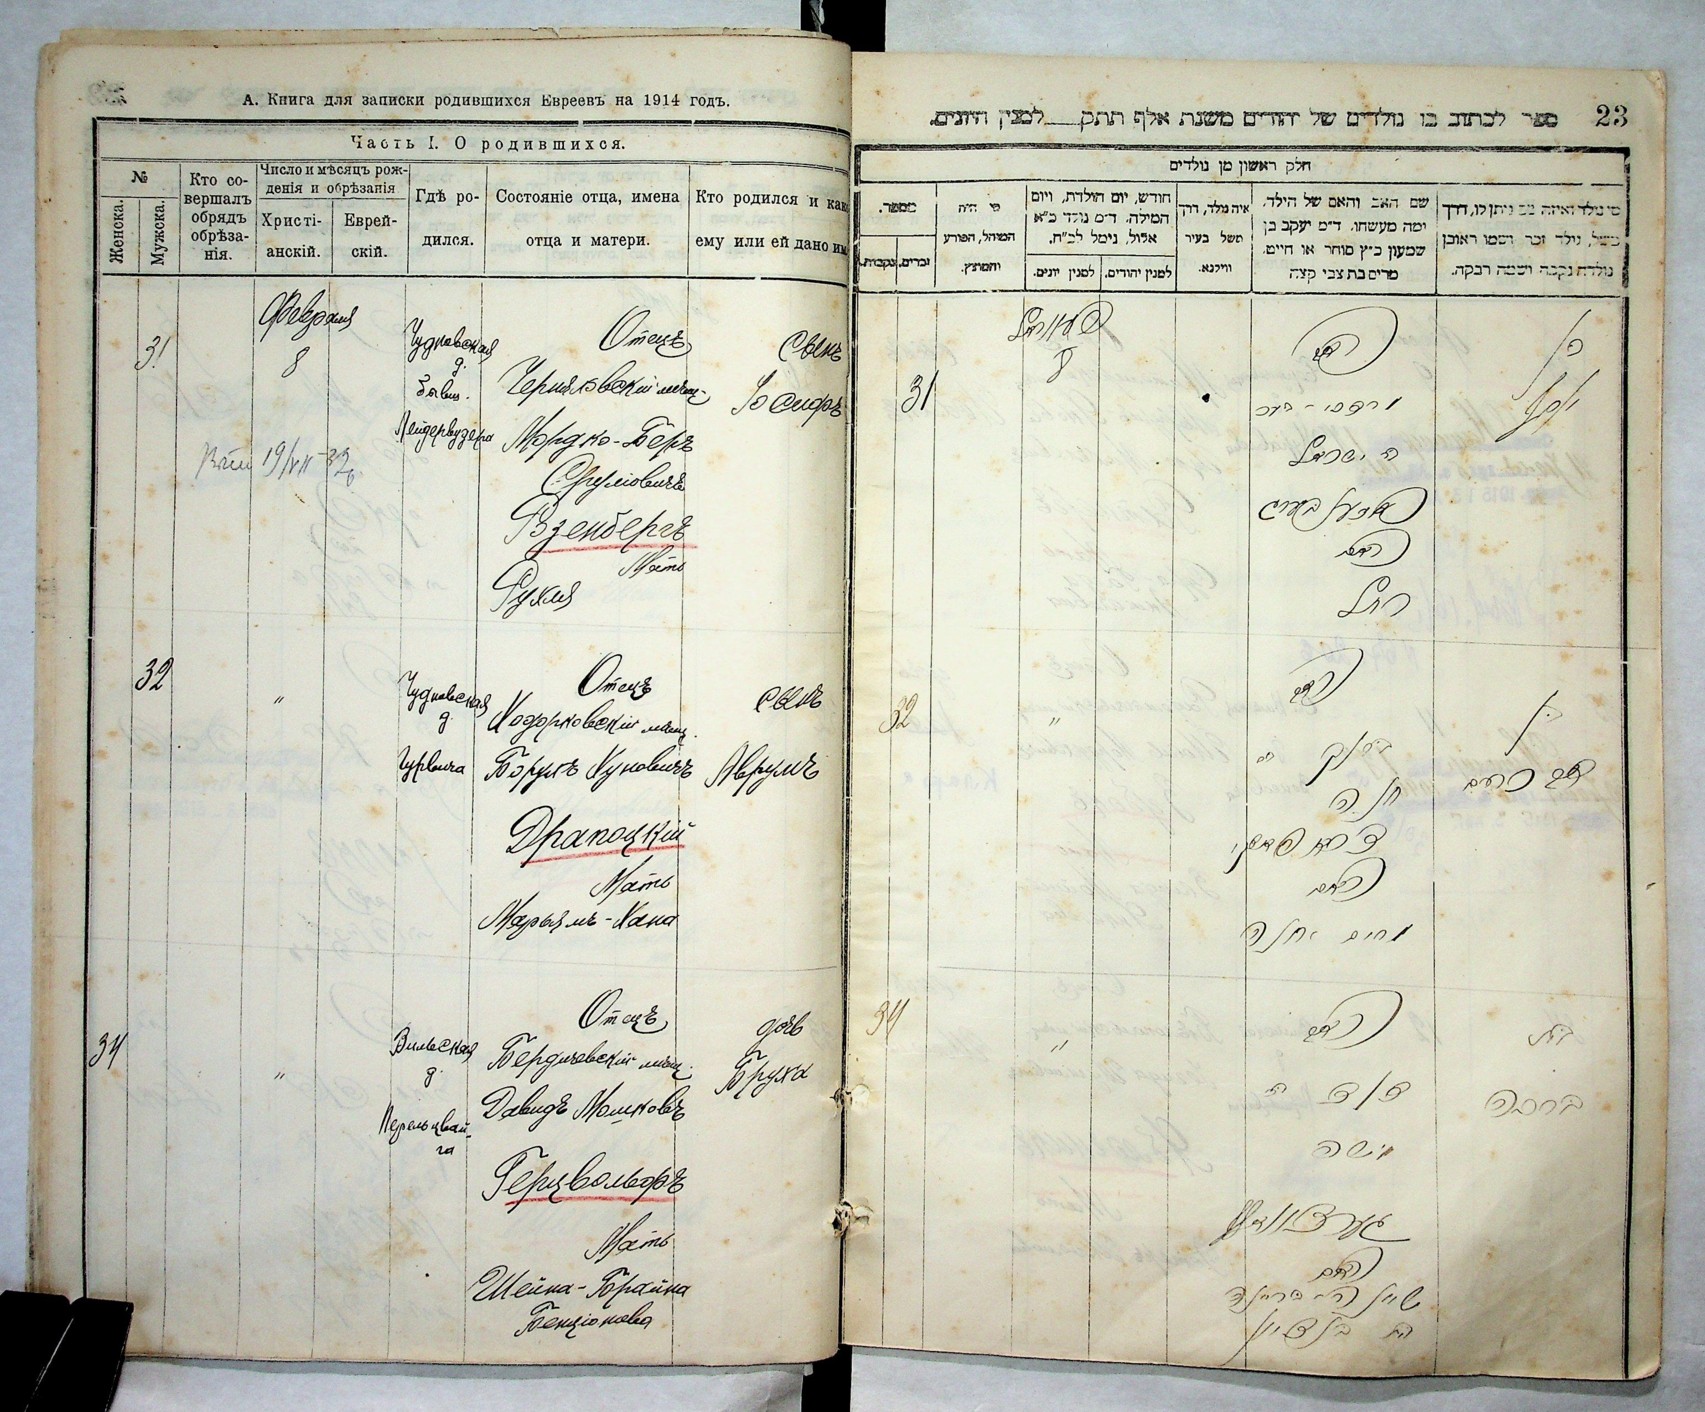 А. Книга для записки родившихся Евреевъ на 1914 годъ.
Часть I. О родившихся.
№
Женска.
Мужска.
Кто со-
вершалъ
обрядъ
обрѣза-
нія.
Число и мѣсяцъ рож-
денія и обрѣзанія
Христі-
анскій.
Еврей-
скій.
Гдѣ ро-
дился.
Состояніе отца, имена
отца и матери.
Кто родился и как
ему или ей дано им
31
Февраля
8
Чудновская
д.
бывш.
Отецъ
Черняховскій мѣщ.
Мордко-Беръ
Срулiовичъ
Вэенбергъ
Мать
Рухля
сынъ
Іосифъ
19/VII-32
32
"
Чудновская
д.
Гурвича
Отецъ
Ходорковскій мѣщ.
Борухъ Хуновичъ
Драпоцкій
Мать
Марьямъ-Хана
сынъ
Аврумъ
34
"
Вильская
д.
Перельцвай-
га
Отецъ
Бердичевскій мѣщ.
Давидъ Мошковъ
Герцвольфъ
Мать
Шейна-Брайна
Бенціонова
дочь
Бруха
23
ספר לכתוב בו נולדים של יהודים משנת אלף תתק למנין היונים.
חלק ראשון מן נולדים
מספר.
זכרים.
נקבות.
מי היה
המוהל, הפורע
והמוצץ.
חודש, יום הולדת, ויום
המילה. ד״מ נולד כ״א
אלול, נימל לכ״ח.
למנין יהודים.
למנין יונים.
איה נולד, דרך
משל בעיר
ווילנא.
שם האב והאם של הילד,
ומה מעשהו. ד״מ יעקב בן
שמעון כ״ץ סוחר או חיים.
מרים בת צבי קצה
מי נולד ואיזה שם ניתן לו, דרך
משל, נולד זכר ושמו ראובן
נולדה נקבה ושמה רבקה.
31
8
האב
ר' ישראל
האם
רחל
בן
יוסף
32
"
האב
חנה
האם
מרים חנה
בן
אברהם
34
"
האב
דוד
משה
האם
בת בן ציון
בת
ברכה